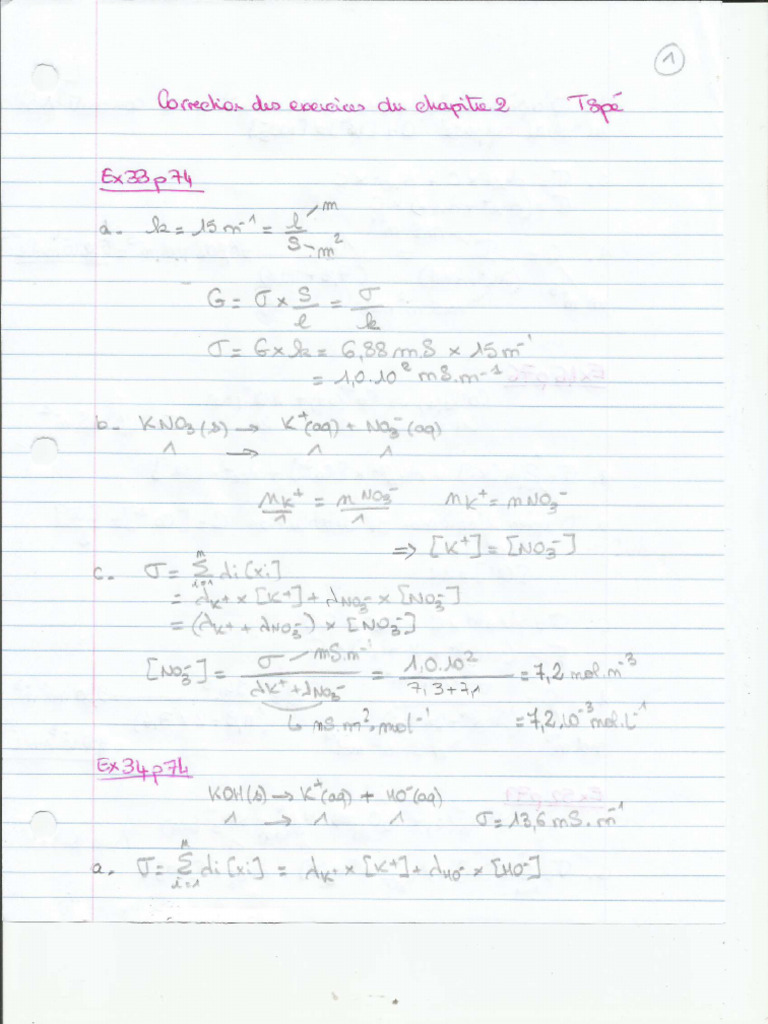 1
Correction des exercices du chapitre 2 TSpé
Ex 33 p 74
a. k = 15 m⁻¹ = l/S m m²
G = σ × S/l = σ/k
σ = G × k = 6,88 mS × 15 m⁻¹
= 1,0.10² mS.m⁻¹
b. KNO₃(s) → K⁺(aq) + NO₃⁻(aq)
1 → 1 1
nK⁺/1 = nNO₃⁻/1 nK⁺ = nNO₃⁻
=> [K⁺] = [NO₃⁻]
c. σ = Σ(i=1, n) λi[xi]
= λK⁺ × [K⁺] + λNO₃⁻ × [NO₃⁻]
= (λK⁺ + λNO₃⁻) × [NO₃⁻]
[NO₃⁻] = σ/(λK⁺ + λNO₃⁻) mS.m⁻¹ = 1,0.10²/(7,3+7,1) = 7,2 mol.m⁻³
mS.m².mol⁻¹ = 7,2.10⁻³ mol.L⁻¹
Ex 34 p 74
KOH(s) → K⁺(aq) + HO⁻(aq)
1 → 1 1 σ = 13,6 mS.m⁻¹
a. σ = Σ(i=1, n) λi[xi] = λK⁺ × [K⁺] + λHO⁻ × [HO⁻]